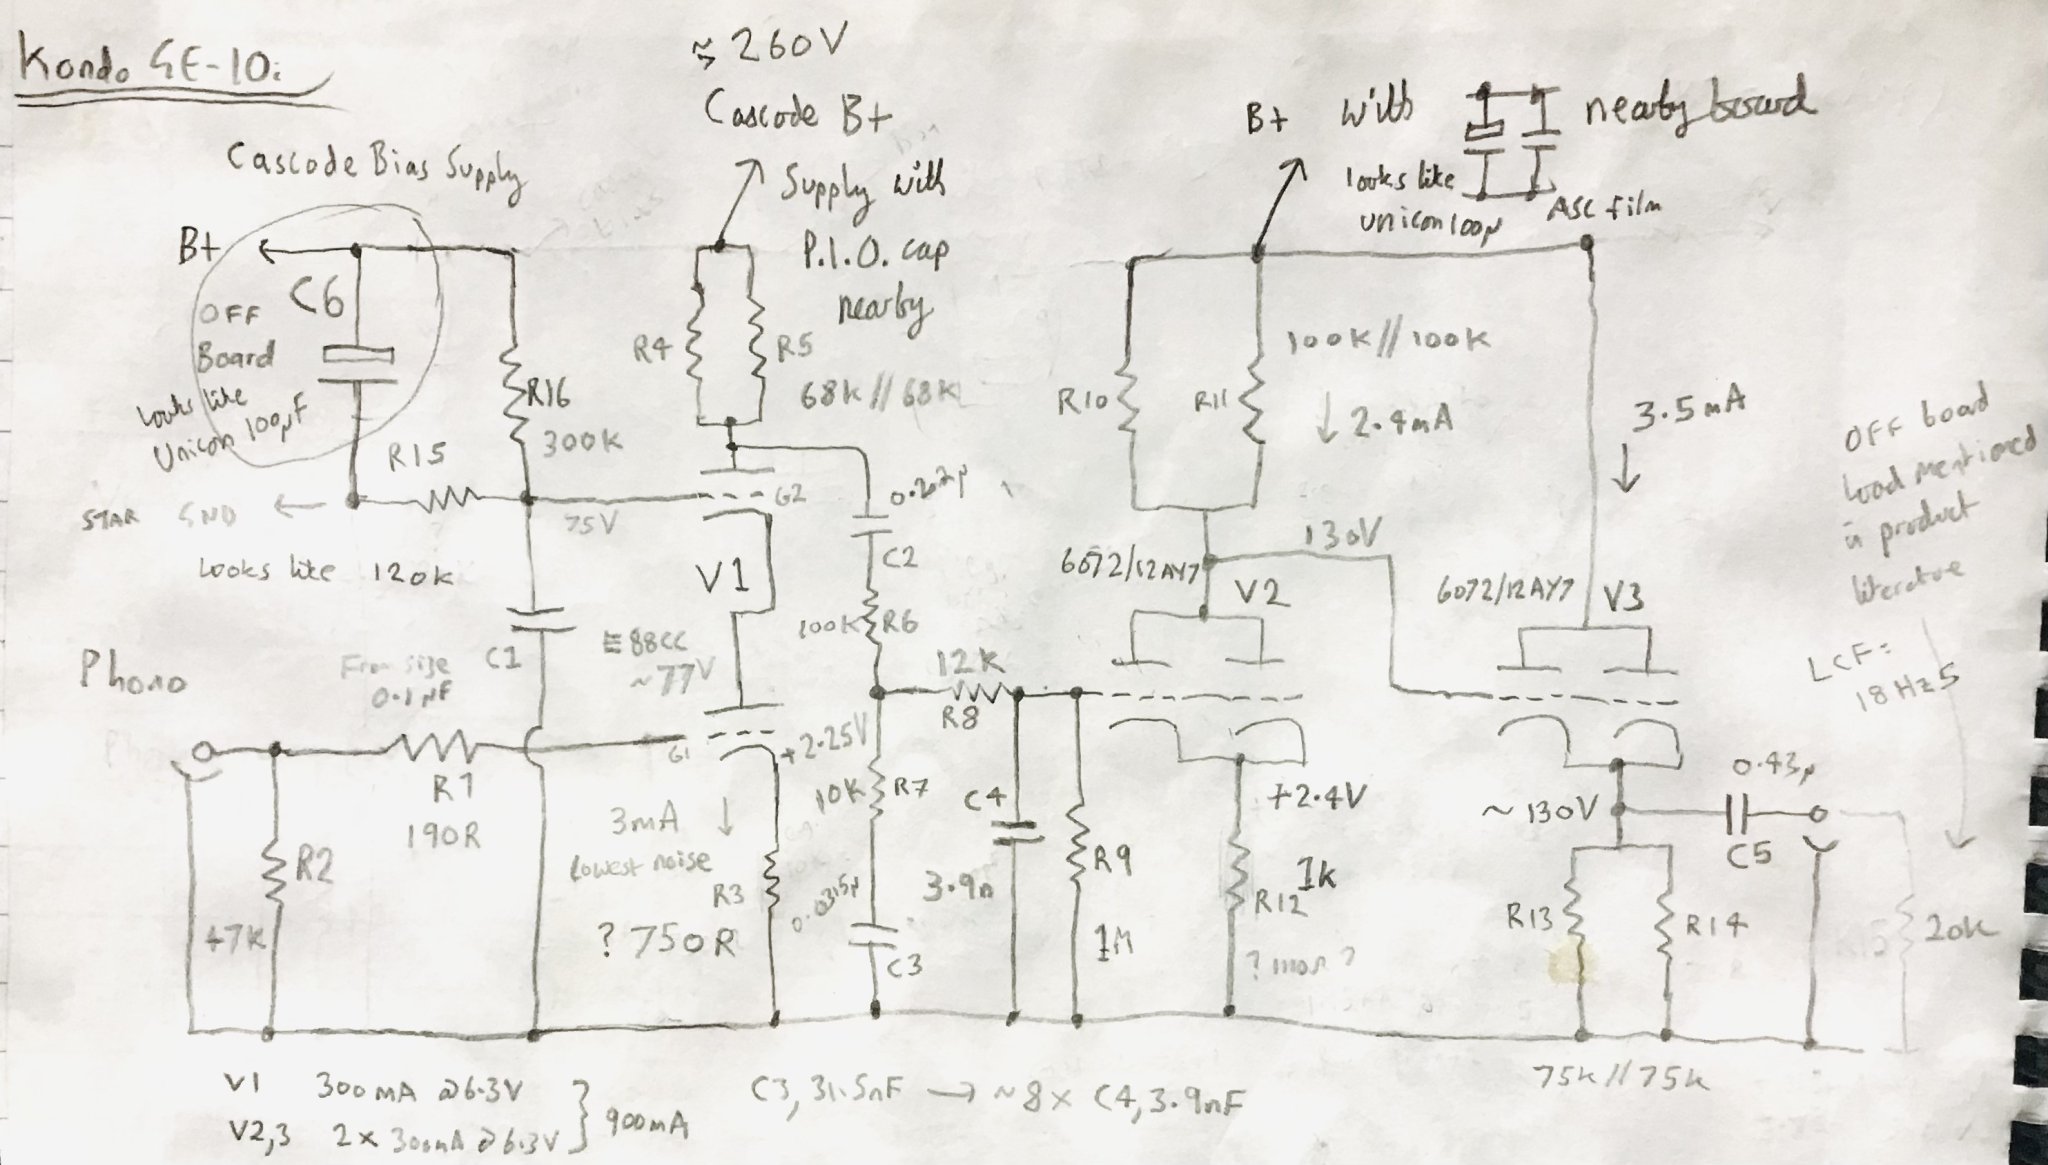 Kondo GE-10i
≈ 260V
Cascode B+
Supply with
P.I.O. cap
nearby
B+ with
nearby board
looks like
Unicon 100µ
ASC film
Cascode Bias Supply
B+
C6
OFF
Board
looks like
Unicon 100µF
R16
300K
R15
STAR GND
looks like 120K
75V
R4
R5
68K//68K
G2
V1
E88CC
~77V
C2
100K R6
12K
R8
R10
R11
100K//100K
2.4mA
3.5mA
130V
6072/12AY7
V2
6072/12AY7
V3
OFF board
load mentioned
in product
literature
LCF=
18Hz5
Phono
C1
From size
0.1µF
R1
190R
R2
47K
G1
+2.25V
3mA
lowest noise
R3
? 750R
10K R7
0.0315µ
C3
C4
3.9n
R9
1M
+2.4V
1K
R12
~130V
0.43µ
C5
R13
R14
20K
75K//75K
V1 300mA @6.3V
V2,3 2 x 300mA @6.3V
900mA
C3, 31.5nF → ~8x C4, 3.9nF